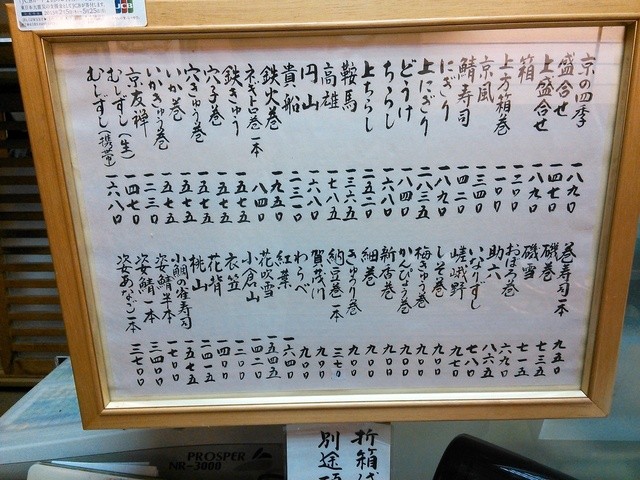 京の四季 一八九〇
盛合せ 一四七〇
上盛合せ 一八九〇
箱 一二〇〇
上方箱巻 一一〇〇
京風 一三四〇
鯖寿司 一四二〇
にぎり 一八九〇
上にぎり 二八三五
どうけ 一八四〇
ちらし 一六八〇
上ちらし 二五二〇
鞍馬 一三六五
高雄 一七八五
円山 一六八〇
貴船 二三一〇
鉄火巻 一九五〇
ネギトロ巻一本 一八四〇
鉄きゅう 一五七五
穴子巻 一五七五
穴きゅう巻 一五七五
いか巻 一五七五
いかきゅう巻 一五七五
京友禅 一二三〇
むしずし(生) 一四七〇
むしずし(携帯) 一六八〇
巻寿司一本 九五〇
磯巻 七三五
磯雪 七一五
おぼろ巻 六九〇
助六 八六五
いなりずし 七八〇
嵯峨野 九七〇
しそ巻 九〇〇
梅きゅう巻 九〇〇
かんぴょう巻 九〇〇
新香巻 九〇〇
細巻 九〇〇
きゅうり巻 九〇〇
納豆巻一本
賀茂川 九〇〇
わらべ 九〇〇
紅葉 一六四〇
花吹雪 一五四五
小倉山 一四二〇
衣笠 一二〇〇
花背 一四〇〇
桃山 二四一五
小鯛の雀寿司 一五七五
姿鯖半本 一七〇〇
姿鯖一本 三四〇〇
姿あなご一本 三七〇〇
折箱
別途
PROSPER
NR-3000
JCB